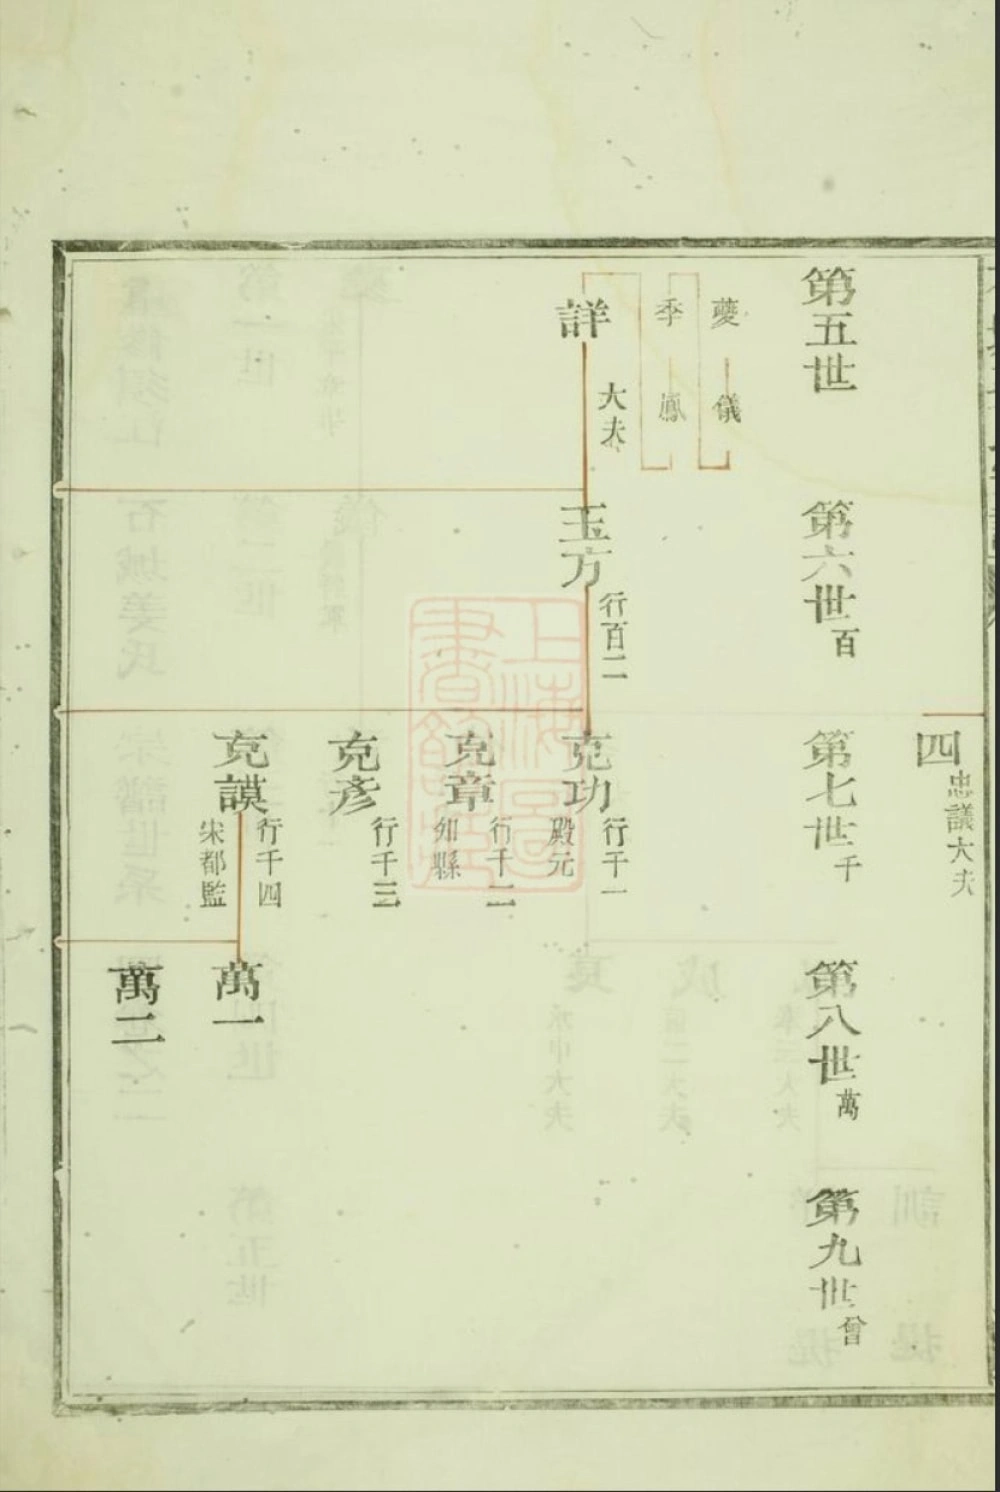 四
忠議大夫
第五世
第六世百
第七世千
第八世萬
第九世曾
夔
儀
季
鳳
詳
大夫
玉方
行百二
克功
行千一
殿元
克章
行千二
知縣
克彥
行千三
克謨
行千四
宋都監
萬一
萬二
上海圖
書館藏